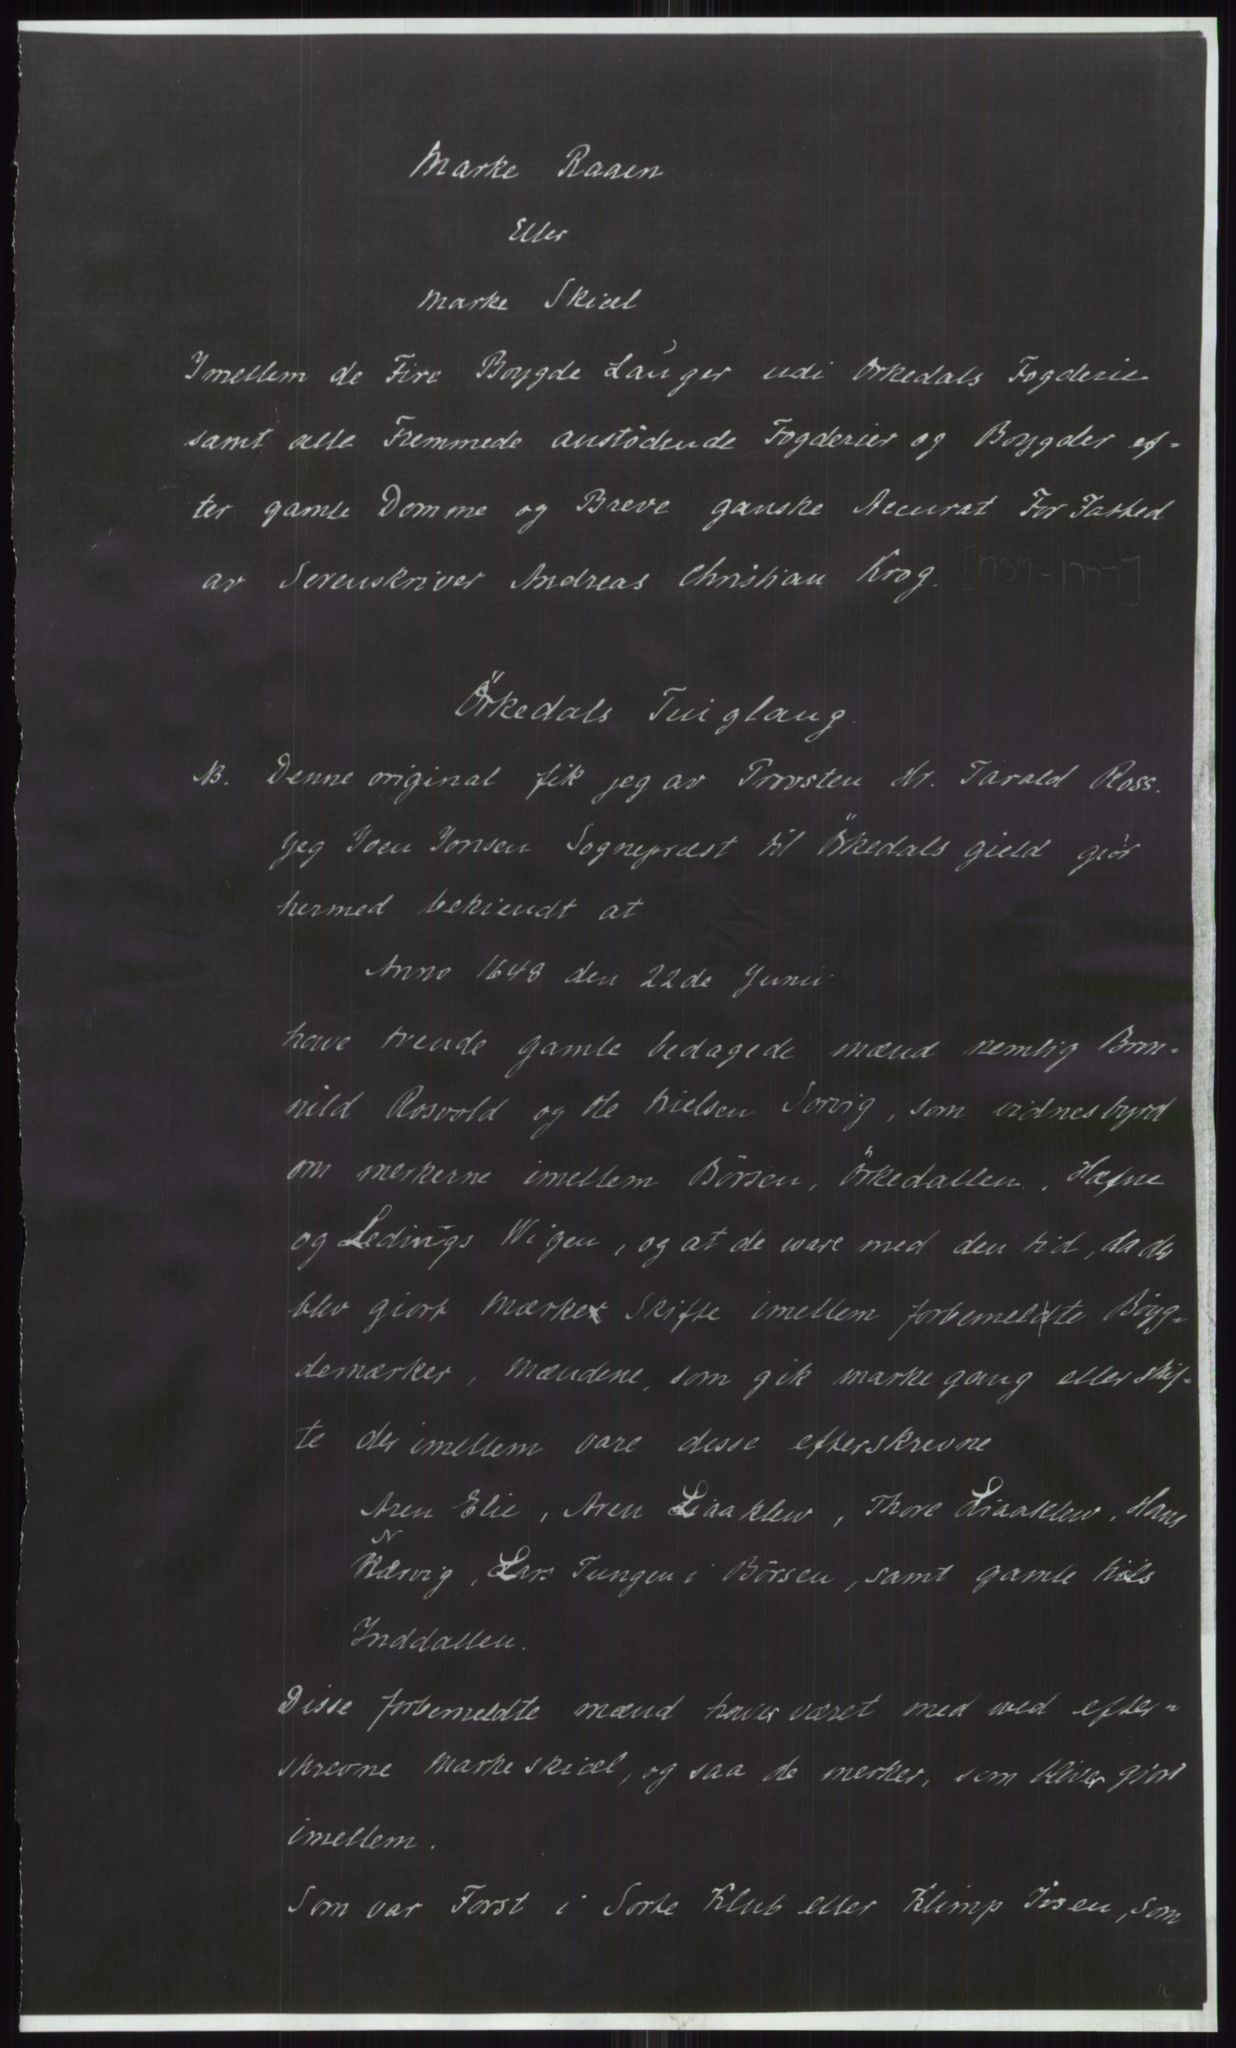 Marke Raaen
Eller
Marke Skiæl
Imellem de Fire Boygde Lauger udi Orkedals Fogderie
samt alle Fremmede anstödende Fogderier og Boygder ef-
ter gamle Domme og Breve ganske Accurat For Fatted
av Sorenskriver Andreas Christian Krog.
Örkedals Tinglaug
NB. Denne original fik jeg av Provsten Hr. Tarald Ross.
Jeg Joen Jonsen Sogneprest til Örkedals gield giör
hermed bekiendt at
Anno 1648 den 22de Junii
have trende gamle bedagede mænd nemlig Bron-
nild Rosvold og Ole Nielsen Sorvig, som vidnesbyrd
om merkerne imellem Börsen, Örkedallen, Hæfne
og Ledings Wigen, og at de ware med den tid, da der
blev giort Marke Skifte imellem forbemeldte Böyg-
demærker, Mændene, som gik marke gang eller skif-
te der imellem vare disse efterskrevne
Aren Elie, Aren Liaaklew, Thore Liaaklew, Hans
Nærvig, Lars Tungen i Börsen, samt gamle Niels
Inddallen.
Disse forbemeldte mænd haver været med wed efter-
skrevne Markeskiæl, og saa de merker, som bliver giort
imellem.
Som var Forst i Sorte Klub eller Klimp Iisen, som